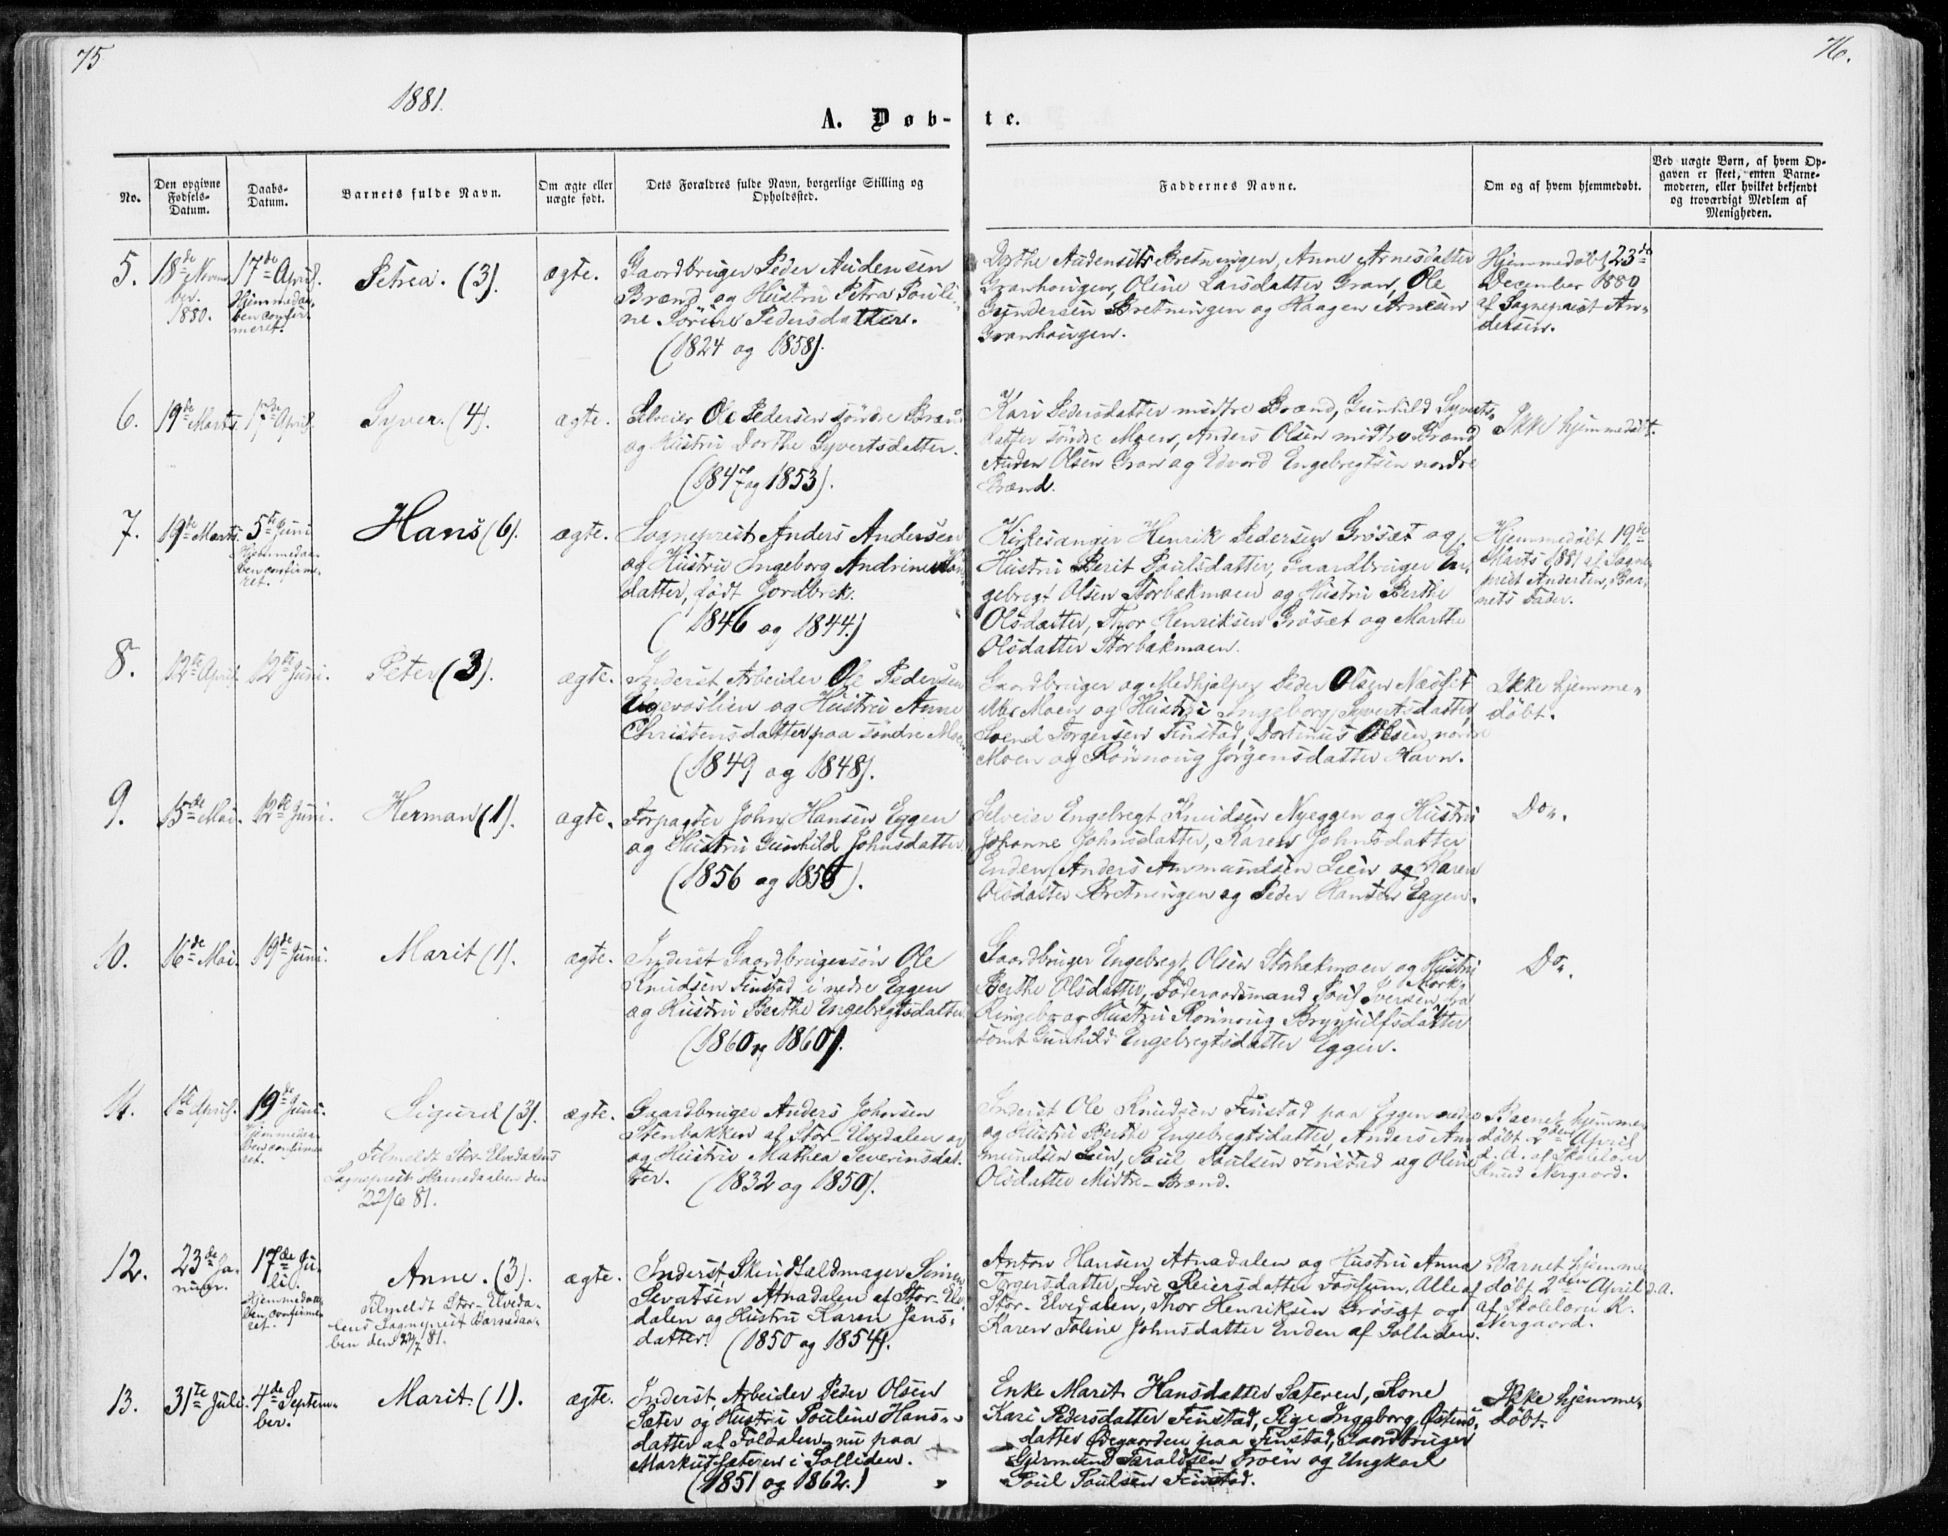 75
76.
1881.
A. Døb-
te.
No.
Den opgivne Fødsels-Datum.
Daabs-Datum.
Barnets fulde Navn.
Om ægte eller uægte født.
Dets Forældres fulde Navn, borgerlige Stilling og Opholdssted.
Faddernes Navne.
Om og af hvem hjemmedøbt.
Ved uægte Børn, af hvem Opgaven er skeet, enten Barnemoderen, eller hvilket bekjendt og troværdigt Medlem af Menigheden.
5.
18de Novem
ber.
1880.
17de April.
Hjemmedaa-
ben confir-
meret.
Petrea. (3).
ægte.
Gaardbruger Peder Audensen
Brænd og Hustru Petra Pouli-
ne Sørine Pedersdatter.
(1824 og 1858).
Audensen Bretningen, Anne Arnesdatter
Granhougen, Oline Larsdatter Gran, Ole
Gundersen Bretningen og Haagen Arnesen
Granhougen.
Hjemmedøbt 23de
December 1880
af Sognepræst An-
dersen.
6.
19de Marts.
17de April.
Syver. (4).
ægte.
Selveier Ole Pedersen søndre Brænd
og Hustru Dorthe Syvertsdatter.
(1847 og 1853).
Kari Pedersdatter midtre Brænd, Gunhild Syverts-
datter søndre Moen, Anders Olsen midtre Brænd
Auden Olsen Gran og Edvard Engebregtsen nordre
Brænd.
Ikke hjemmedøbt.
7.
19de Marts.
5te Juni.
Hjemmedaa-
ben confirme-
ret.
Hans (6).
ægte.
Sognepræst Anders Andersen
og Hustru Ingeborg Andrine
datter, født Jordbrek.
(1846 og 1844.)
Kirkesanger Henrik Pedersen Grøsæt og
Hustru Berit Poulsdatter, Gaardbruger En-
gebregt Olsen Storbækmoen og Hustru Berthe
Olsdatter, Thor Henriksen Grøsæt og Marthe
Olsdatter Storbækmoen.
Hjemmedøbt 19de
Marts 1881 af Sogne-
præst Andersen, Bar-
nets Fader.
8.
12te April.
12te Juni.
Peter (3).
ægte.
Inderst Arbeider Ole Pedersen
og Hustru Anne
Christensdatter paa søndre Moen
(1849 og 1848).
Gaardbruger og Medhjælper Peder Olsen Næsset
Moen og Hustru Ingeborg Syvertsdatter,
Svend Torgersen Finstad, Dortinus Olsen nordre
Moen og Rønnoug Jørgensdatter Havn.
Ikke hjemme-
døbt.
9.
15de Mai.
12te Juni.
Herman (1).
ægte.
Forpagter John Hansen Eggen
og Hustru Gunhild Johnsdatter
(1856 og 1856).
Selveier Engebregt Knudsen Nyeggen og Hustru
Johanne Johnsdatter, Karen Johnsdatter
Enden, Anders Ammundsen Lien og Karen
Olsdatter Bretningen og Peder Hansen Eggen.
Do.
10.
16de Mai.
19de Juni.
Marit (1).
ægte.
Inderst Gaardbrugersøn Ole
Knudsen Finstad i nedre Eggen
og Hustru Berthe Engebregtsdatter
(1860 og 1860).
Gaardbruger Engebregt Olsen Storbækmoen og Hustru
Berthe Olsdatter, Føderaadsmand Poul Iversen Mork fra
Ringebo og Hustru Rønnoug Brynjulfsdatter
samt Gunhild Engebregtsdatter Eggen.
Do.
11.
1te April.
19de Juni.
Hjemmedaa-
ben confirme-
ret.
Sigurd (3).
Tilmeldt Stor-Elvedalens
Sognepræst Barnedaaben den
22/6 81.
ægte.
Gaardbruger Anders Johnsen
Stenbakken af Stor-Elvedalen og
og Hustru Mathea Severinsdat-
ter. (1832 og 1850).
Inderst Ole Knudsen Finstad paa Eggen nedre
og Hustru Berthe Engebregtsdatter, Anders Am-
mundsen Lien, Poul Poulsen Finstad og Oline
Olsdatter Midtre-Brænd.
Barnet hjemme-
døbt 2den April
d. A. af Skolelærer
Knud Nergaard.
12.
23de Ja-
nuar.
17de Ju-
li.
Hjemmedaa-
ben confirme-
ret.
Anne. (3).
Tilmeldt Stor-Elveda-
lens Sognepræst Barnedaa-
ben den 22/7 81.
ægte.
Inderst Skindfældmager Simen
Sevatsen Atnadalen af Stor-Elv-
dalen og Hustru Karen Jens-
datter. (1850 og 1854).
Anton Hansen Atnadalen og Hustru Anne
Torgersdatter, Live Reiersdatter Fossum, Alle af
Stor-Elvedalen, Thor Henriksen Grøsæt og
Karen Toline Johnsdatter Enden af Solliden.
Barnet hjemme-
døbt 2den April d.A.
af Skolelærer K.
Nergaard.
13.
31te Juli.
4de Septem-
ber.
Marit. (1).
ægte.
Inderst, Arbeider Peder Olsen
Sæter og Hustru Pouline Hans-
datter af Foldalen nu paa
Markussæteren i Solliden.
(1851 og 1862.)
Enke Marit Hansdatter Sæteren, Kone
Kari Pedersdatter Finstad, Pige Ingeborg Østens-
datter Ødegaarden paa Finstad, Gaardbruger
Gjermund Taraldsen Troen og Ungkarl
Poul Poulsen Finstad.
Ikke hjemme-
døbt.